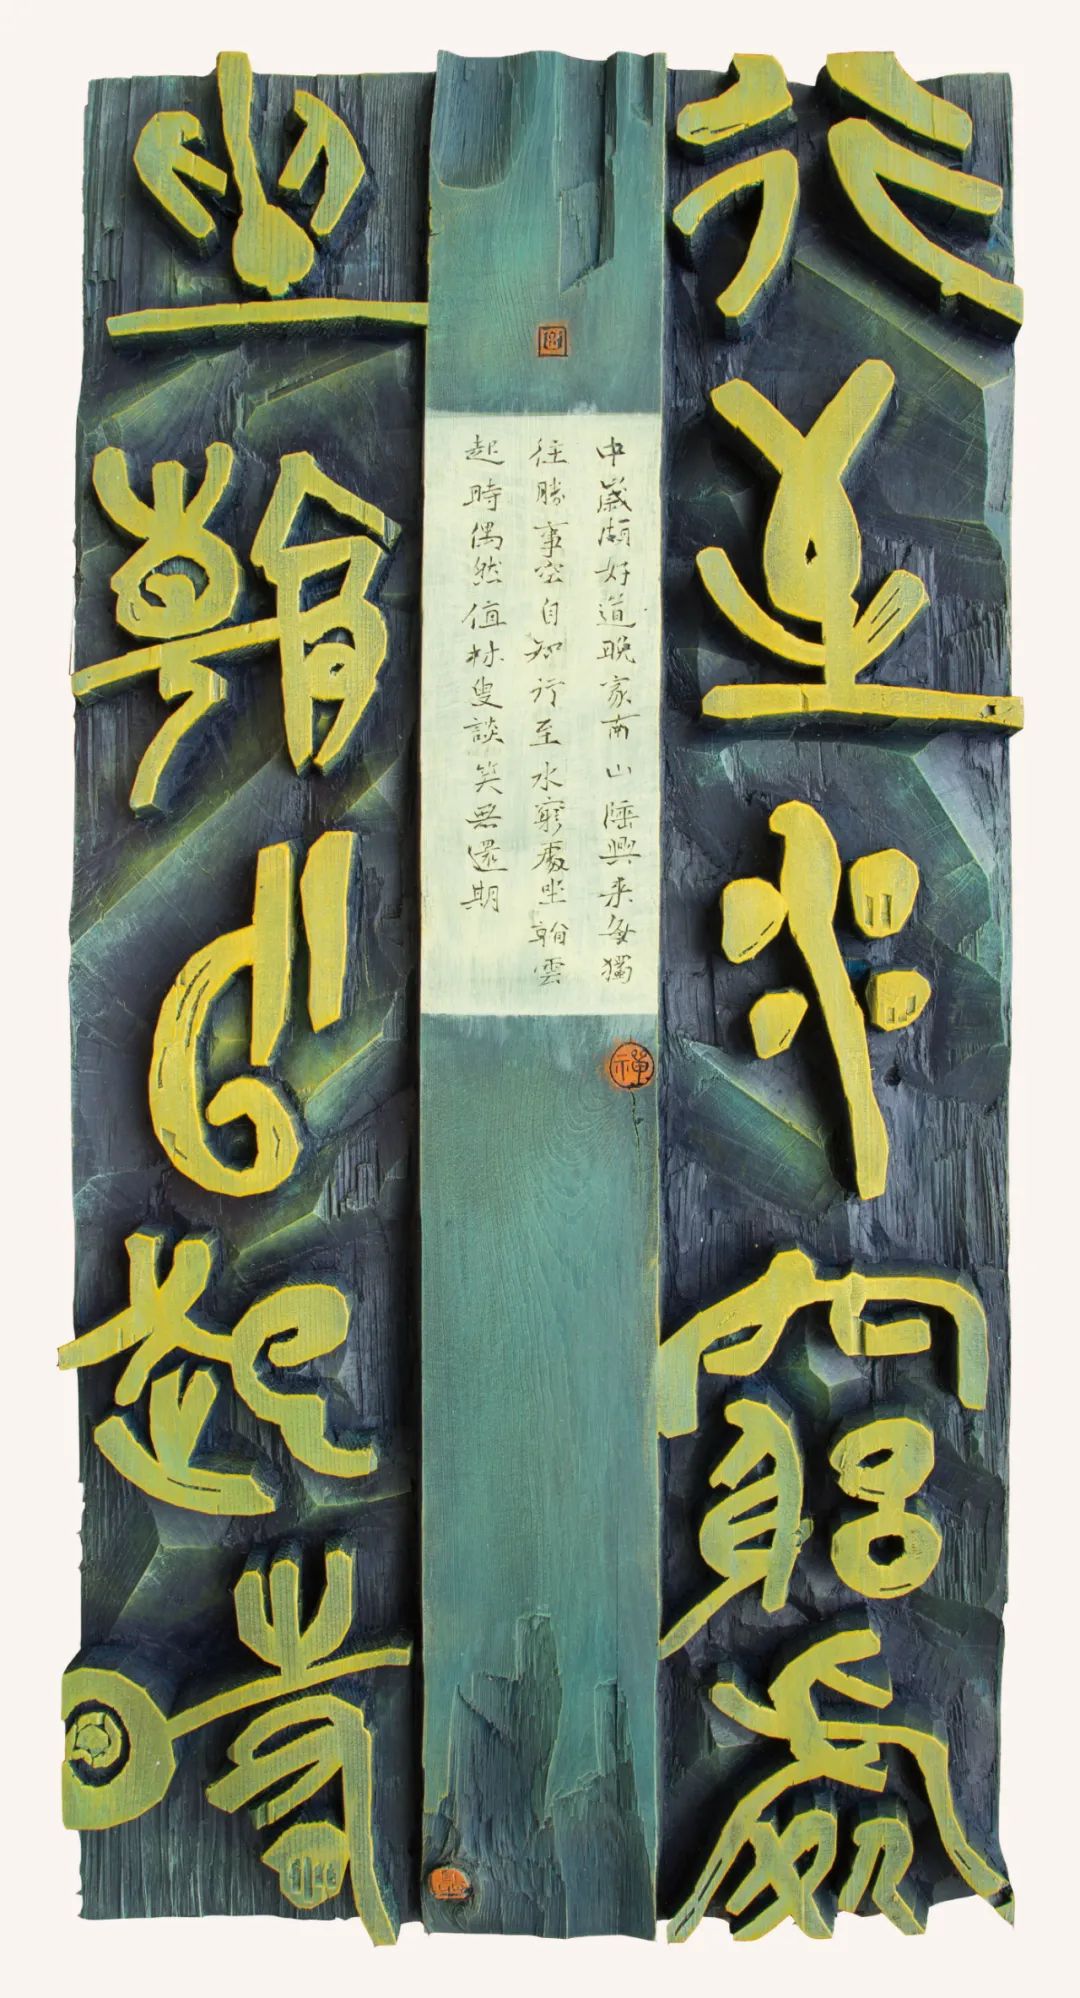 行至水窮處
中歲頗好道晚家南山陲興来每獨
往勝事空自知行至水窮處坐看雲
起時偶然值林叟談笑無還期
禪
坐看雲起時